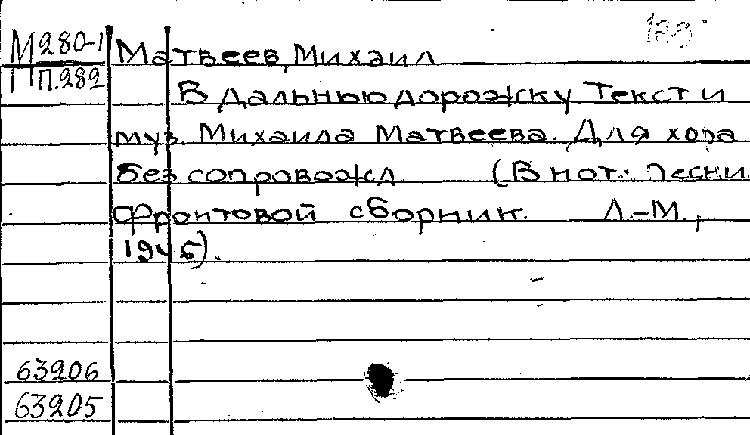 М280-1
П п.282
Матвеев, Михаил
В дальнюю дорожку Текст и
муз. Михаила Матвеева. Для хора
без сопровожд (В нот.: Песни
Фронтовой сборник. Л.-М.,
1945).
63206
63205